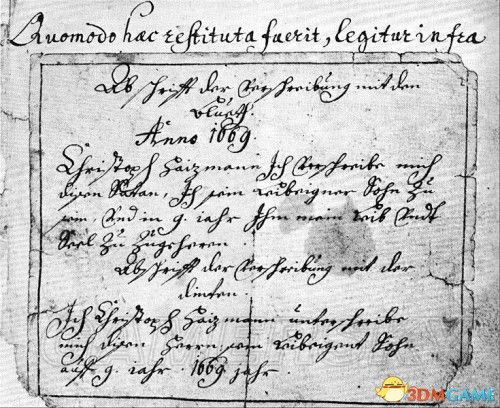 Quomodo hæc restituta fuerit, legitur infra
Abschrifft der Verschreibung mit dem
Bluett.
Anno 1669.
Christoph Haizmann Ich verschreibe mich
disen Satan, Ich sein leibeigner Sohn zu
sein, Vnd in 9. iahr Ihm mein leib Vndt
Seel zu zugeheren.
Abschrifft der Verschreibung mit der
dinten.
Ich Christoph Haizmann vnterschreibe
mich disen Herrn sein leibeigent Sohn
auff 9. iahr. 1669 jahr.
3DMGAME